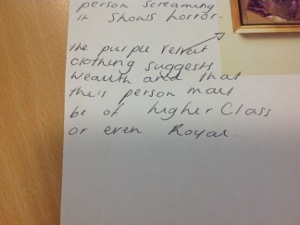 person screaming
it shows horror.
the purple velvet
clothing suggests
wealth and that
this person may
be of higher Class
or even Royal